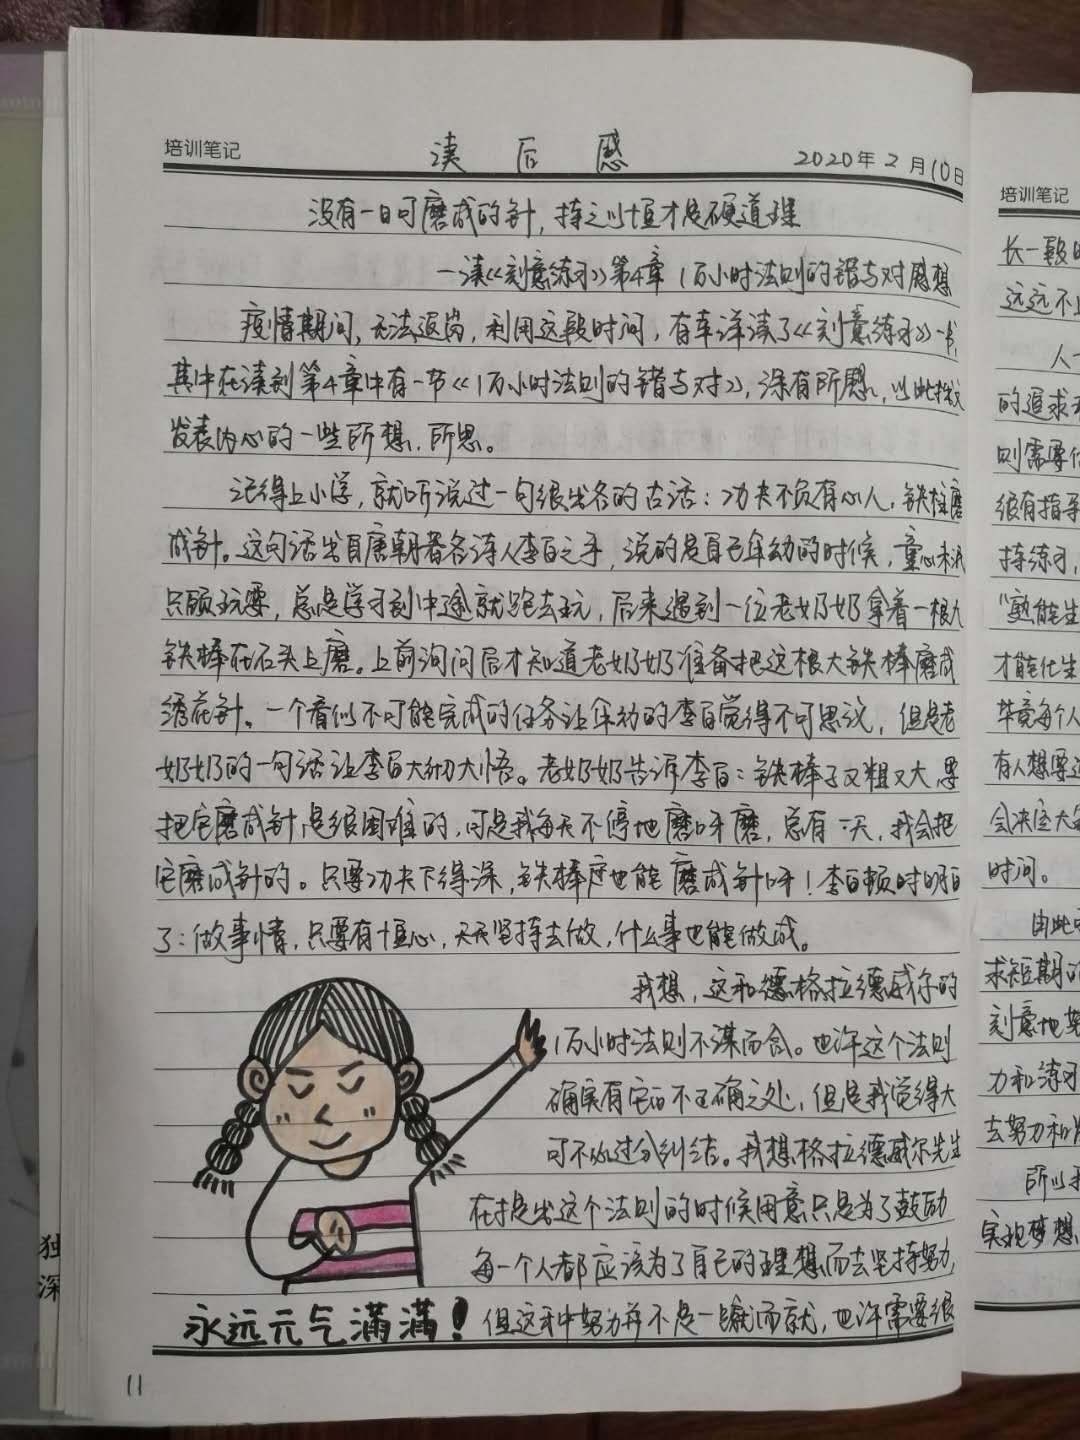 培训笔记
读后感
2020年2月10日
没有一日可磨成的针，持之以恒才是硬道理
—读《刻意练习》第4章 1万小时法则的错与对感想
疫情期间，无法返岗，利用这段时间，有幸详读了《刻意练习》一书，
其中在读到第4章中有一节《1万小时法则的错与对》，深有所感，以此拙文
发表内心的一些所想．所思。
记得上小学，就听说过一句很出名的古话：功夫不负有心人，铁柱磨
成针。这句话出自唐朝著名诗人李白之手，说的是自己年幼的时候，童心未泯
只顾玩耍，总是学习到中途就跑去玩，后来遇到一位老奶奶拿着一根大
铁棒在石头上磨。上前询问后才知道老奶奶准备把这根大铁棒磨成
绣花针。一个看似不可能完成的任务让年幼的李白觉得不可思议，但是老
奶奶的一句话让李白大彻大悟。老奶奶告诉李白：铁棒子又粗又大，要
把它磨成针是很困难的，可是我每天不停地磨呀磨，总有一天，我会把
它磨成针的。只要功夫下得深，铁棒定也能磨成针呀！李白顿时明白
了：做事情，只要有恒心，天天坚持去做，什么事也能做成。
我想，这和德格拉德威尔的
1万小时法则不谋而合。也许这个法则
确实有它的不正确之处，但是我觉得大
可不必过分纠结。我想格拉德威尔先生
在提出这个法则的时候用意只是为了鼓励
每一个人都应该为了自己的理想而去坚持努力，
但这种努力并不是一蹴而就，也许需要很
永远元气满满！
11
独
深
培训笔记
长一段时
远远不
人
的追求
则需要
很有指导
持练习，
“熟能生
才能化生
毕竟每个人
有人想要
会决定大
时间。
由此
求短期的
刻意地努
力和练习
去努力和
所以我
实现梦想